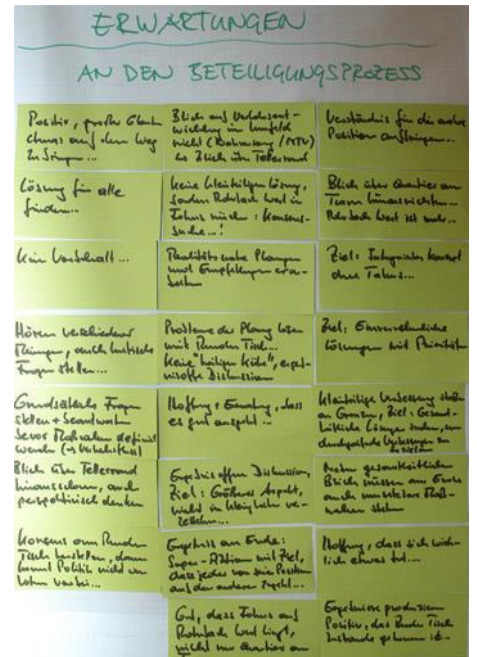 ERWARTUNGEN
AN DEN BETEILIGUNGSPROZESS
Positiv, großer Glaube
etwas auf den Weg
zu bringen...
Lösung für alle
finden...
Kein Vorbehalt...
Hören verschiedener
Meinungen, auch kritische
Fragen stellen...
Grundsätzliche Fragen
stellen + beantworten
bevor Maßnahmen definiert
werden (→ Verkehrsfluss)
Blick über Tellerrand
hinausschauen, auch
perspektivisch denken
Konsens am Runden
Tisch herstellen, dann
kommt Politik nicht
vorbei...
Blick auf Verkehrsent-
wicklung im Umfeld
Blick über Tellerrand
keine kleinteilige Lösung,
sondern Rohrbach West in
Fokus : Konsens-
suche...!
Realitätsnahe Planungen
und Empfehlungen erar-
beiten
Probleme der Planung lösen
mit Runden Tisch...
Keine "heiligen Kühe", ergeb-
nisoffene Diskussion
Hoffnung + Erwartung, dass
es gut ausgeht...
Ergebnisoffene Diskussion,
Ziel: Größerer Aspekt,
nicht in Kleinigkeiten ver-
zetteln...
Ergebnis am Ende:
Super-Aktion mit Ziel,
dass jeder von seiner Position
auf den anderen zugeht...
Gut, dass Fokus auf
Rohrbach West liegt,
nicht nur Quartier am
Verständnis für die andere
Position aufbringen...
Blick über Quartier am
Turm hinausrichten...
Rohrbach West ist mehr...
Ziel: Integriertes Konzept
ohne Tabus...
Ziel: Einvernehmliche
Lösungen mit Priorität
Kleinteilige Verbesserung stoßen
an Grenzen, Ziel: Gesamt-
Lösungen finden, um
Verbesserungen zu
erzielen
Neben gesamtheitlichem
Blick müssen am Ende
auch umsetzbare Maß-
nahmen stehen
Hoffnung, dass sich wirk-
lich etwas tut....
Ergebnisse produzieren
Positiv, dass Runder Tisch
zustande gekommen ist...